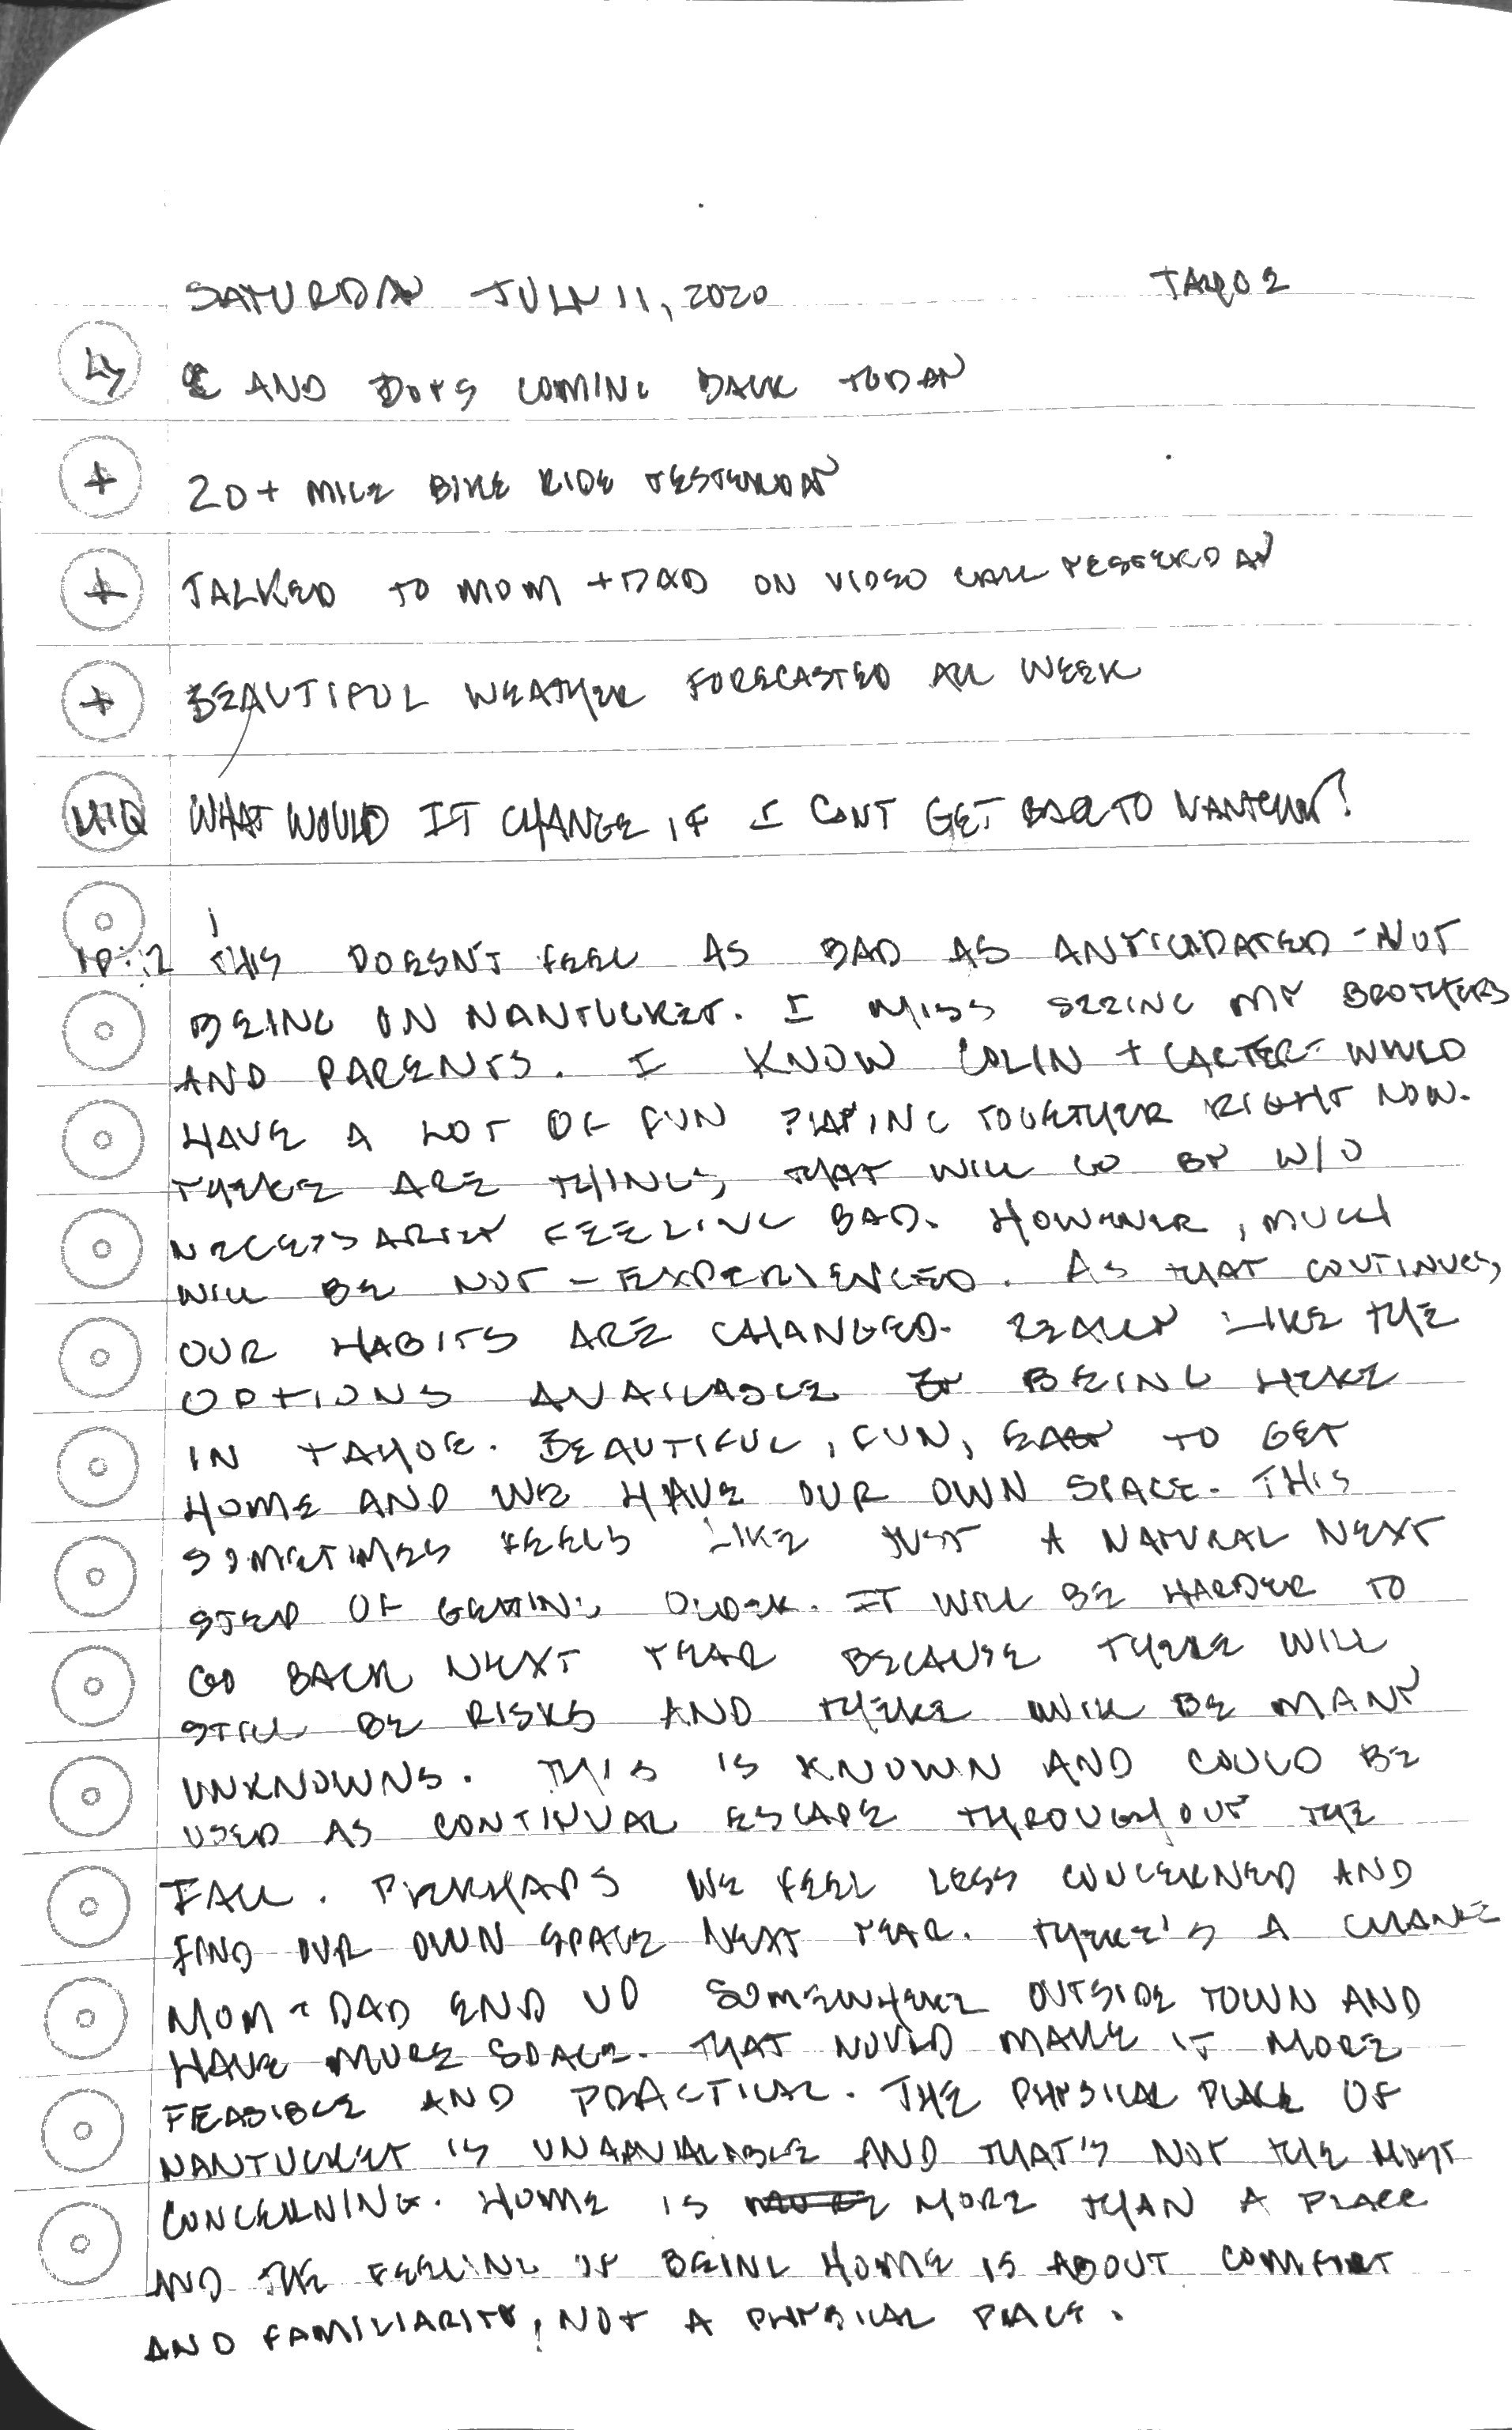 SATURDAY JULY 11, 2020
AND BOYS COMING BACK TODAY
+ 20+ MILE BIKE RIDE YESTERDAY
+ TALKED TO MOM + DAD ON VIDEO CALL YESTERDAY
+ BEAUTIFUL WEATHER FORECASTED ALL WEEK
WHAT WOULD IT CHANGE IF I CANT GET BACK TO NANTUCKET?
THIS DOESN'T FEEL AS BAD AS ANTICIPATED - NOT
BEING ON NANTUCKET. I MISS SEEING MY BROTHERS
AND PARENTS. I KNOW COLIN + CARTER WOULD
HAVE A LOT OF FUN PLAYING TOGETHER RIGHT NOW.
THERE ARE THINGS THAT WILL GO BY W/O
NECESSARILY FEELING BAD. HOWEVER, MUCH
WILL BE NOT-EXPERIENCED. AS THAT CONTINUES,
OUR HABITS ARE CHANGED. REALLY LIKE THE
OPTIONS AVAILABLE BEING HERE
IN TAHOE. BEAUTIFUL, FUN, EASY TO GET
HOME AND WE HAVE OUR OWN SPACE. THIS
SOMETIMES FEELS LIKE JUST A NATURAL NEXT
STEP OF GETTING OLDER. IT WILL BE HARDER TO
GO BACK NEXT YEAR BECAUSE THERE WILL
STILL BE RISKS AND THERE WILL BE MANY
UNKNOWNS. THIS IS KNOWN AND COULD BE
USED AS CONTINUAL ESCAPE THROUGHOUT THE
FALL. PERHAPS WE FEEL LESS CONCERNED AND
FIND OUR OWN SPACE NEXT YEAR. THERE'S A CHANCE
MOM + DAD END UP SOMEWHERE OUTSIDE TOWN AND
HAVE MORE SPACE. THAT WOULD MAKE IT MORE
FEASIBLE AND PRACTICAL. THE PHYSICAL PLACE OF
NANTUCKET IS UNAVAILABLE AND THAT'S NOT THE MOST
CONCERNING. HOME IS MORE THAN A PLACE
AND THE FEELING OF BEING HOME IS ABOUT COMFORT
AND FAMILIARITY, NOT A PHYSICAL PLACE.